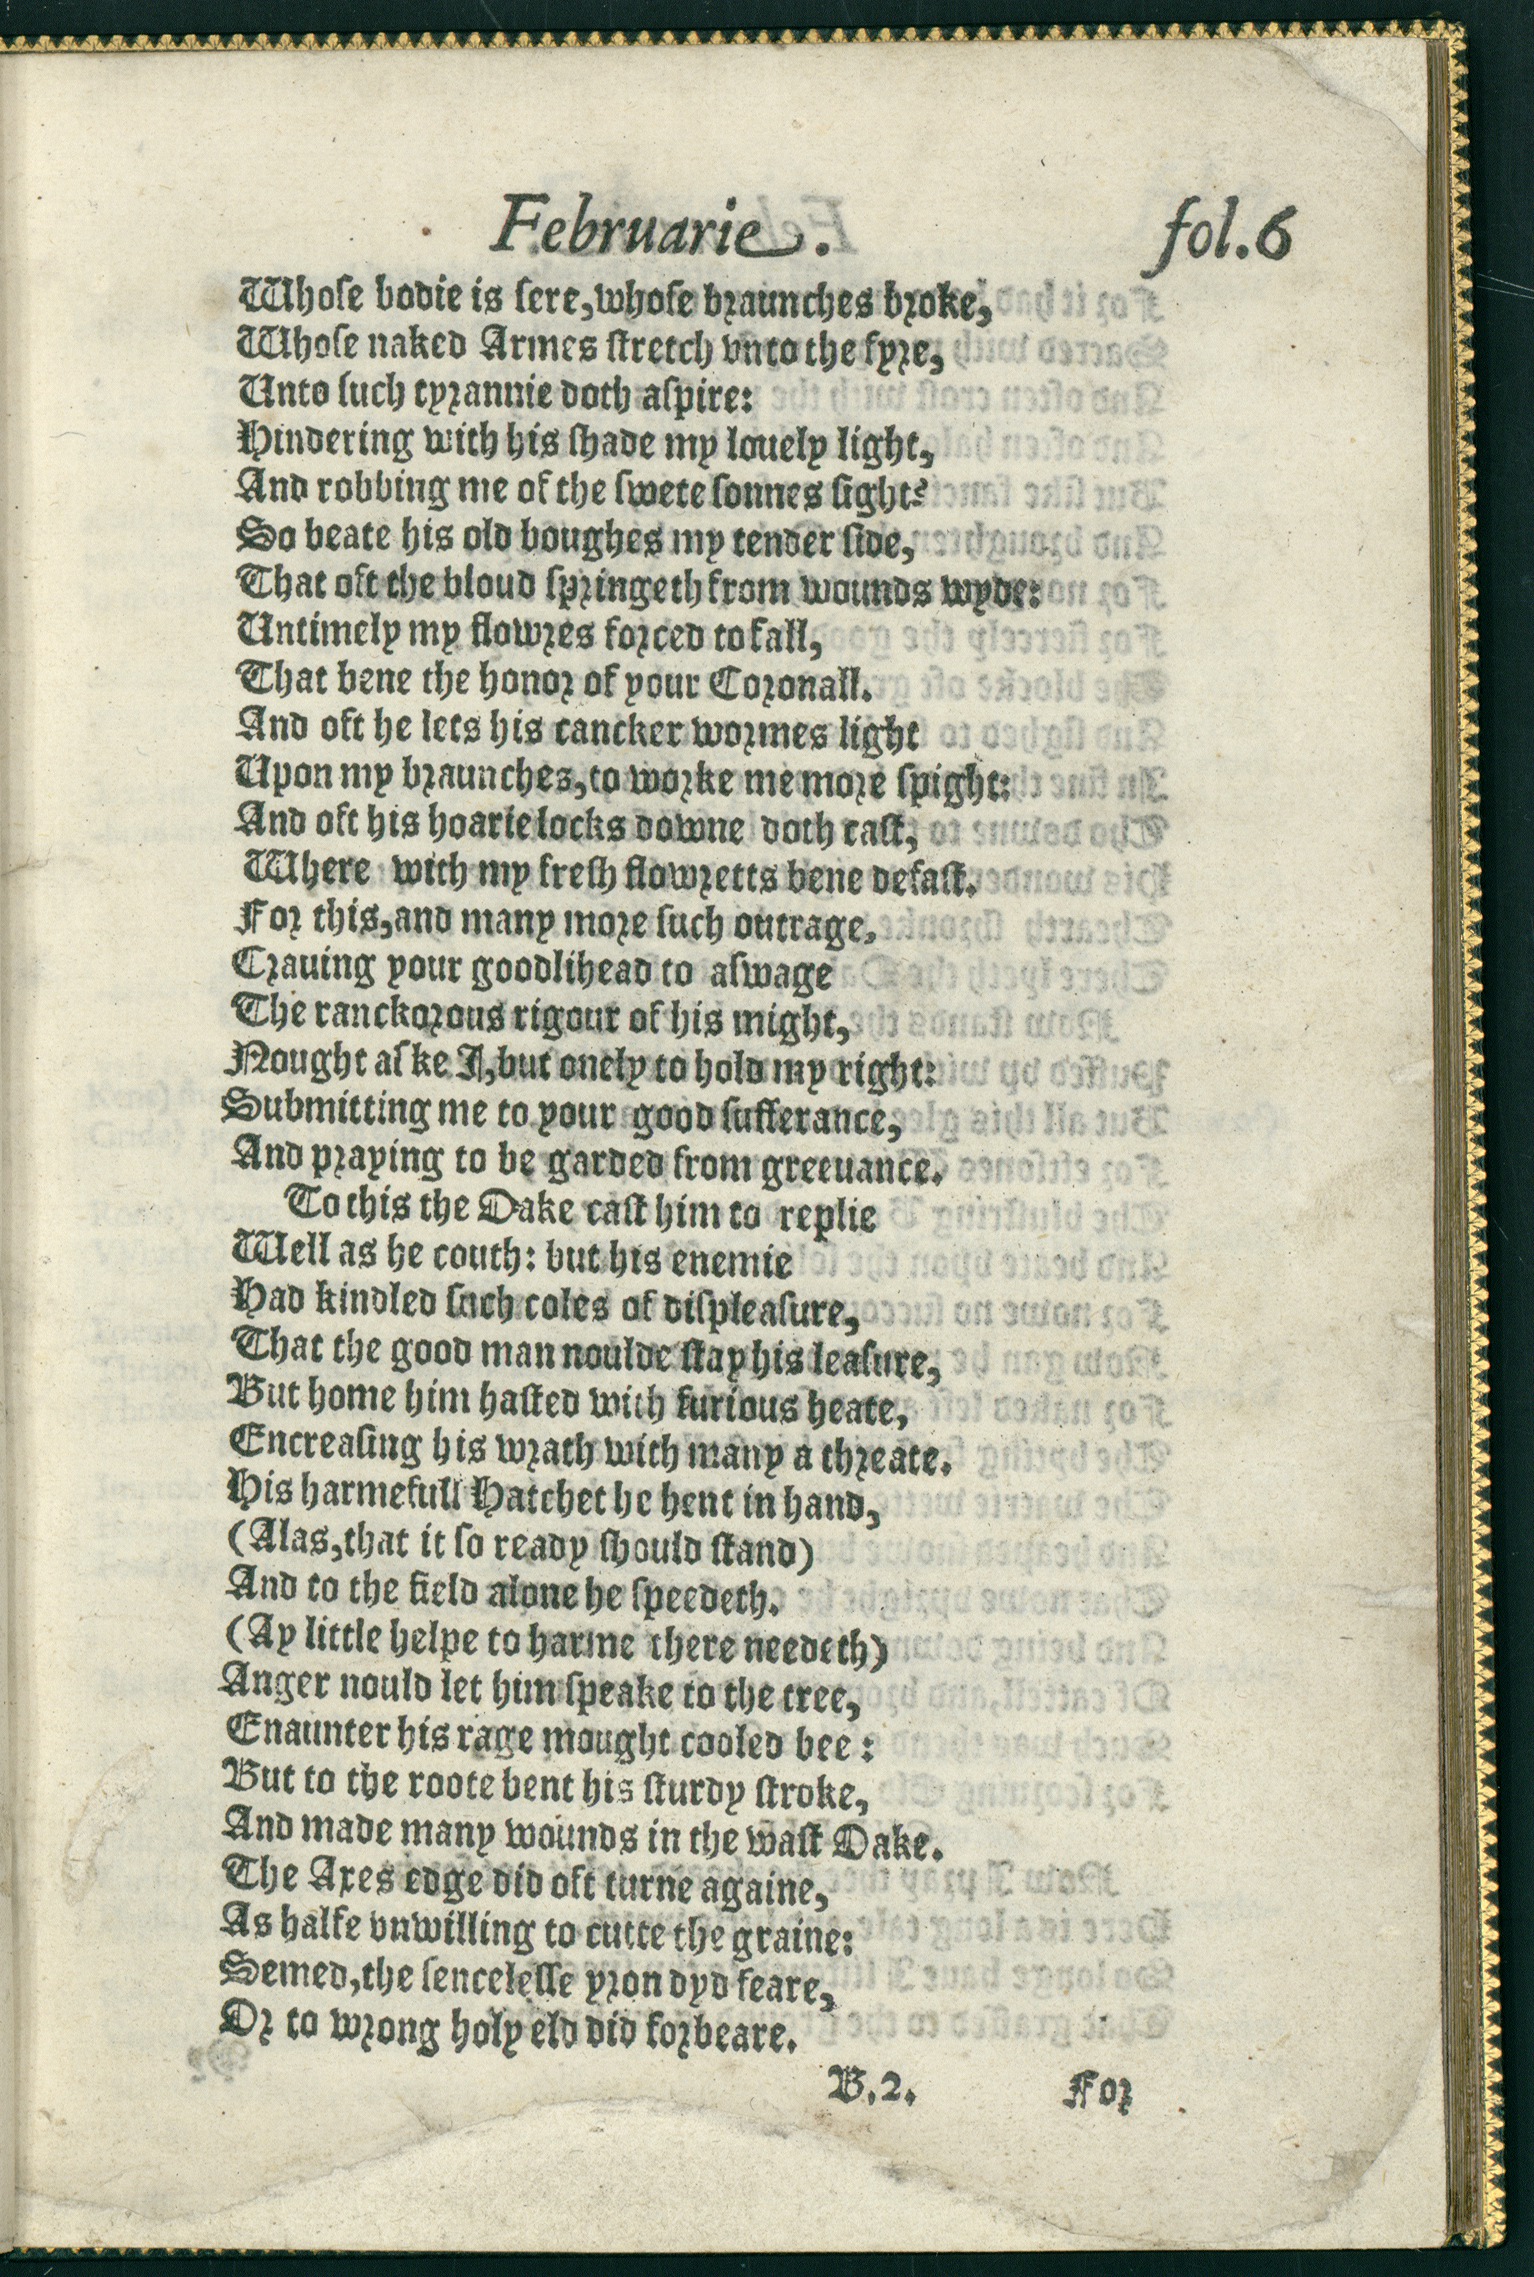 Februarie. fol.6
Whose bodie is sere, whose braunches broke,
Whose naked Armes stretch vnto the fyre,
Unto such tyrannie doth aspire:
Hindering with his shade my louely light,
And robbing me of the swete sonnes sight:
So beate his old boughes my tender side,
That oft the bloud springeth from wounds wyde:
Untimely my flowres forced to fall,
That bene the honor of your Coronall.
And oft he lets his cancker wormes light
Upon my braunches, to worke me more spight:
And oft his hoarie locks downe doth cast,
Where with my fresh flowretts bene defast.
For this, and many more such outrage,
Crauing your goodlihead to aswage
The ranckorous rigour of his might,
Nought aske I, but onely to hold my right:
Submitting me to your good sufferance,
And praying to be garded from greeuance.
To this the Oake cast him to replie
Well as he couth: but his enemie
Had kindled such coles of displeasure,
That the good man noulde stay his leasure,
But home him hasted with furious heate,
Encreasing his wrath with many a threate.
His harmefull Hatchet he hent in hand,
(Alas, that it so ready should stand)
And to the field alone he speedeth.
(Ay little helpe to harme there needeth)
Anger nould let him speake to the tree,
Enaunter his rage mought cooled bee:
But to the roote bent his sturdy stroke,
And made many wounds in the wast Oake.
The Axes edge did oft turne againe,
As halfe vnwilling to cutte the graine:
Semed, the sencelesse yron dyd feare,
Or to wrong holy eld did forbeare.
B.2. For